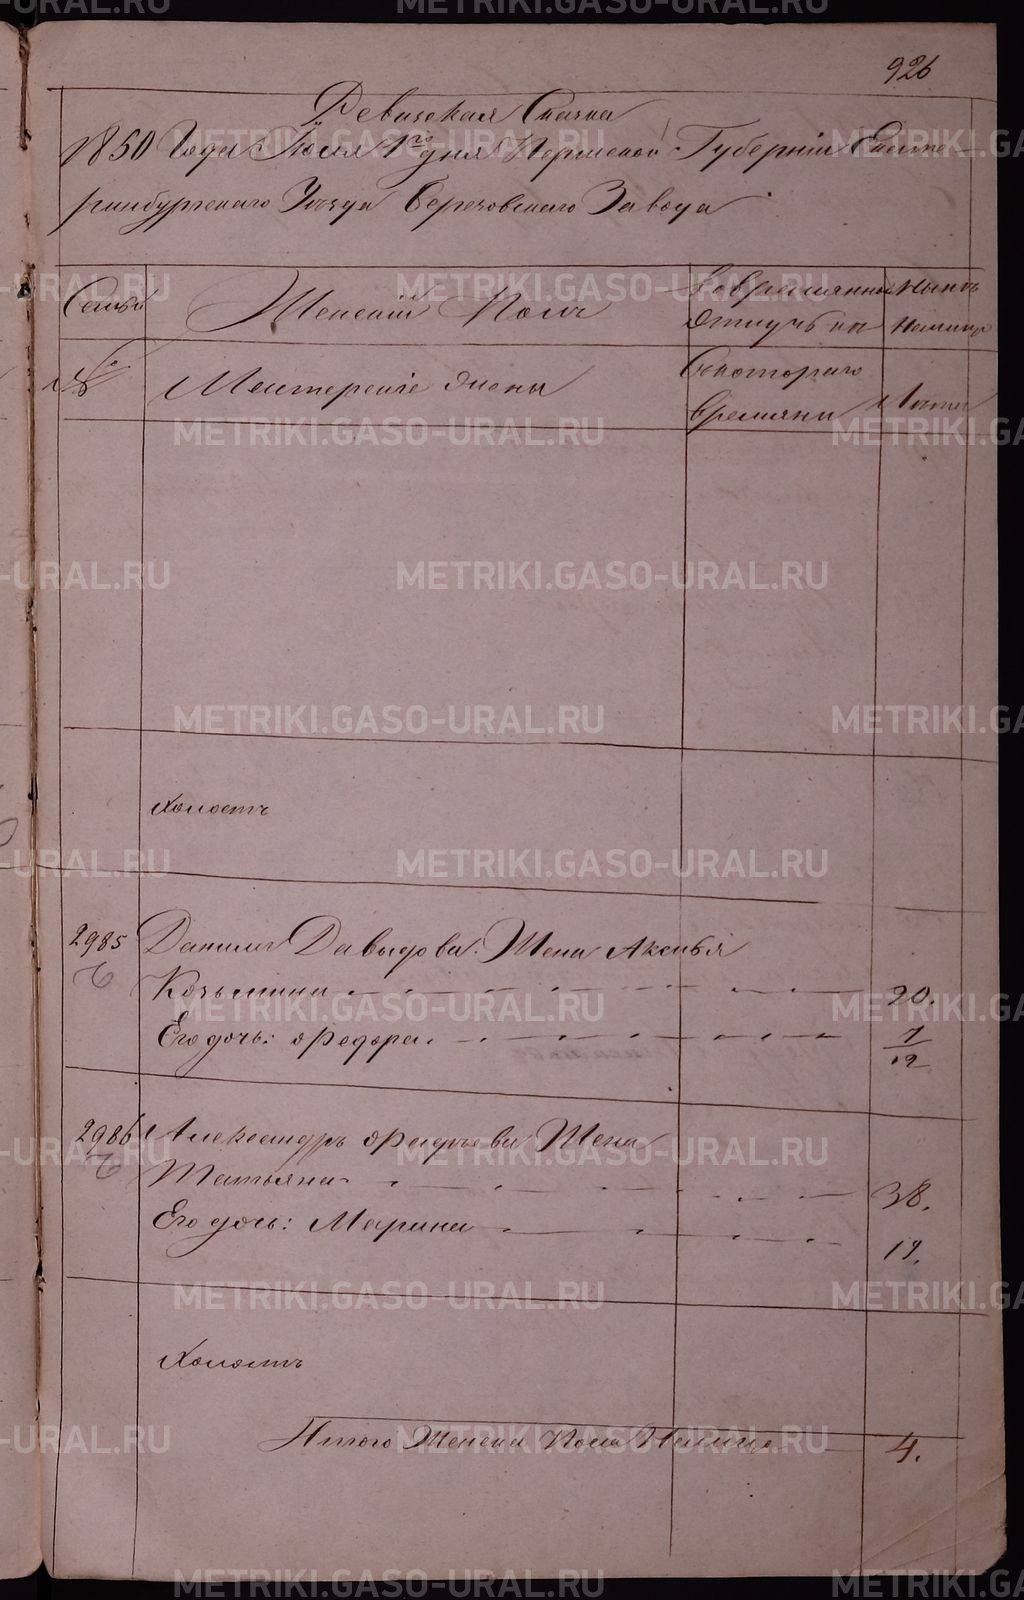 926
Ревизская Сказка
1850 Года Июля 1го дня Пермской Губернiи Екате-
ринбургскаго Уѣзда Березовскаго Завода
Семьи
Женскiй Полъ
Во временной
Нынѣ
отлучкѣ
на лицо
№
Мастерскiе жены
Съкотораго
времяни
Лѣта
Холостъ
2985
Данила Давыдова Жена Аксинья
Козьмина
20.
Его дочь: Ѳедора
7/12
2986
Александръ Ѳадѣева Жена
Татьяна
38.
Его дочь: Марина
19.
Холостъ
Итого Женска Пола Налицо
4.
METRIKI.GASO-URAL.RU